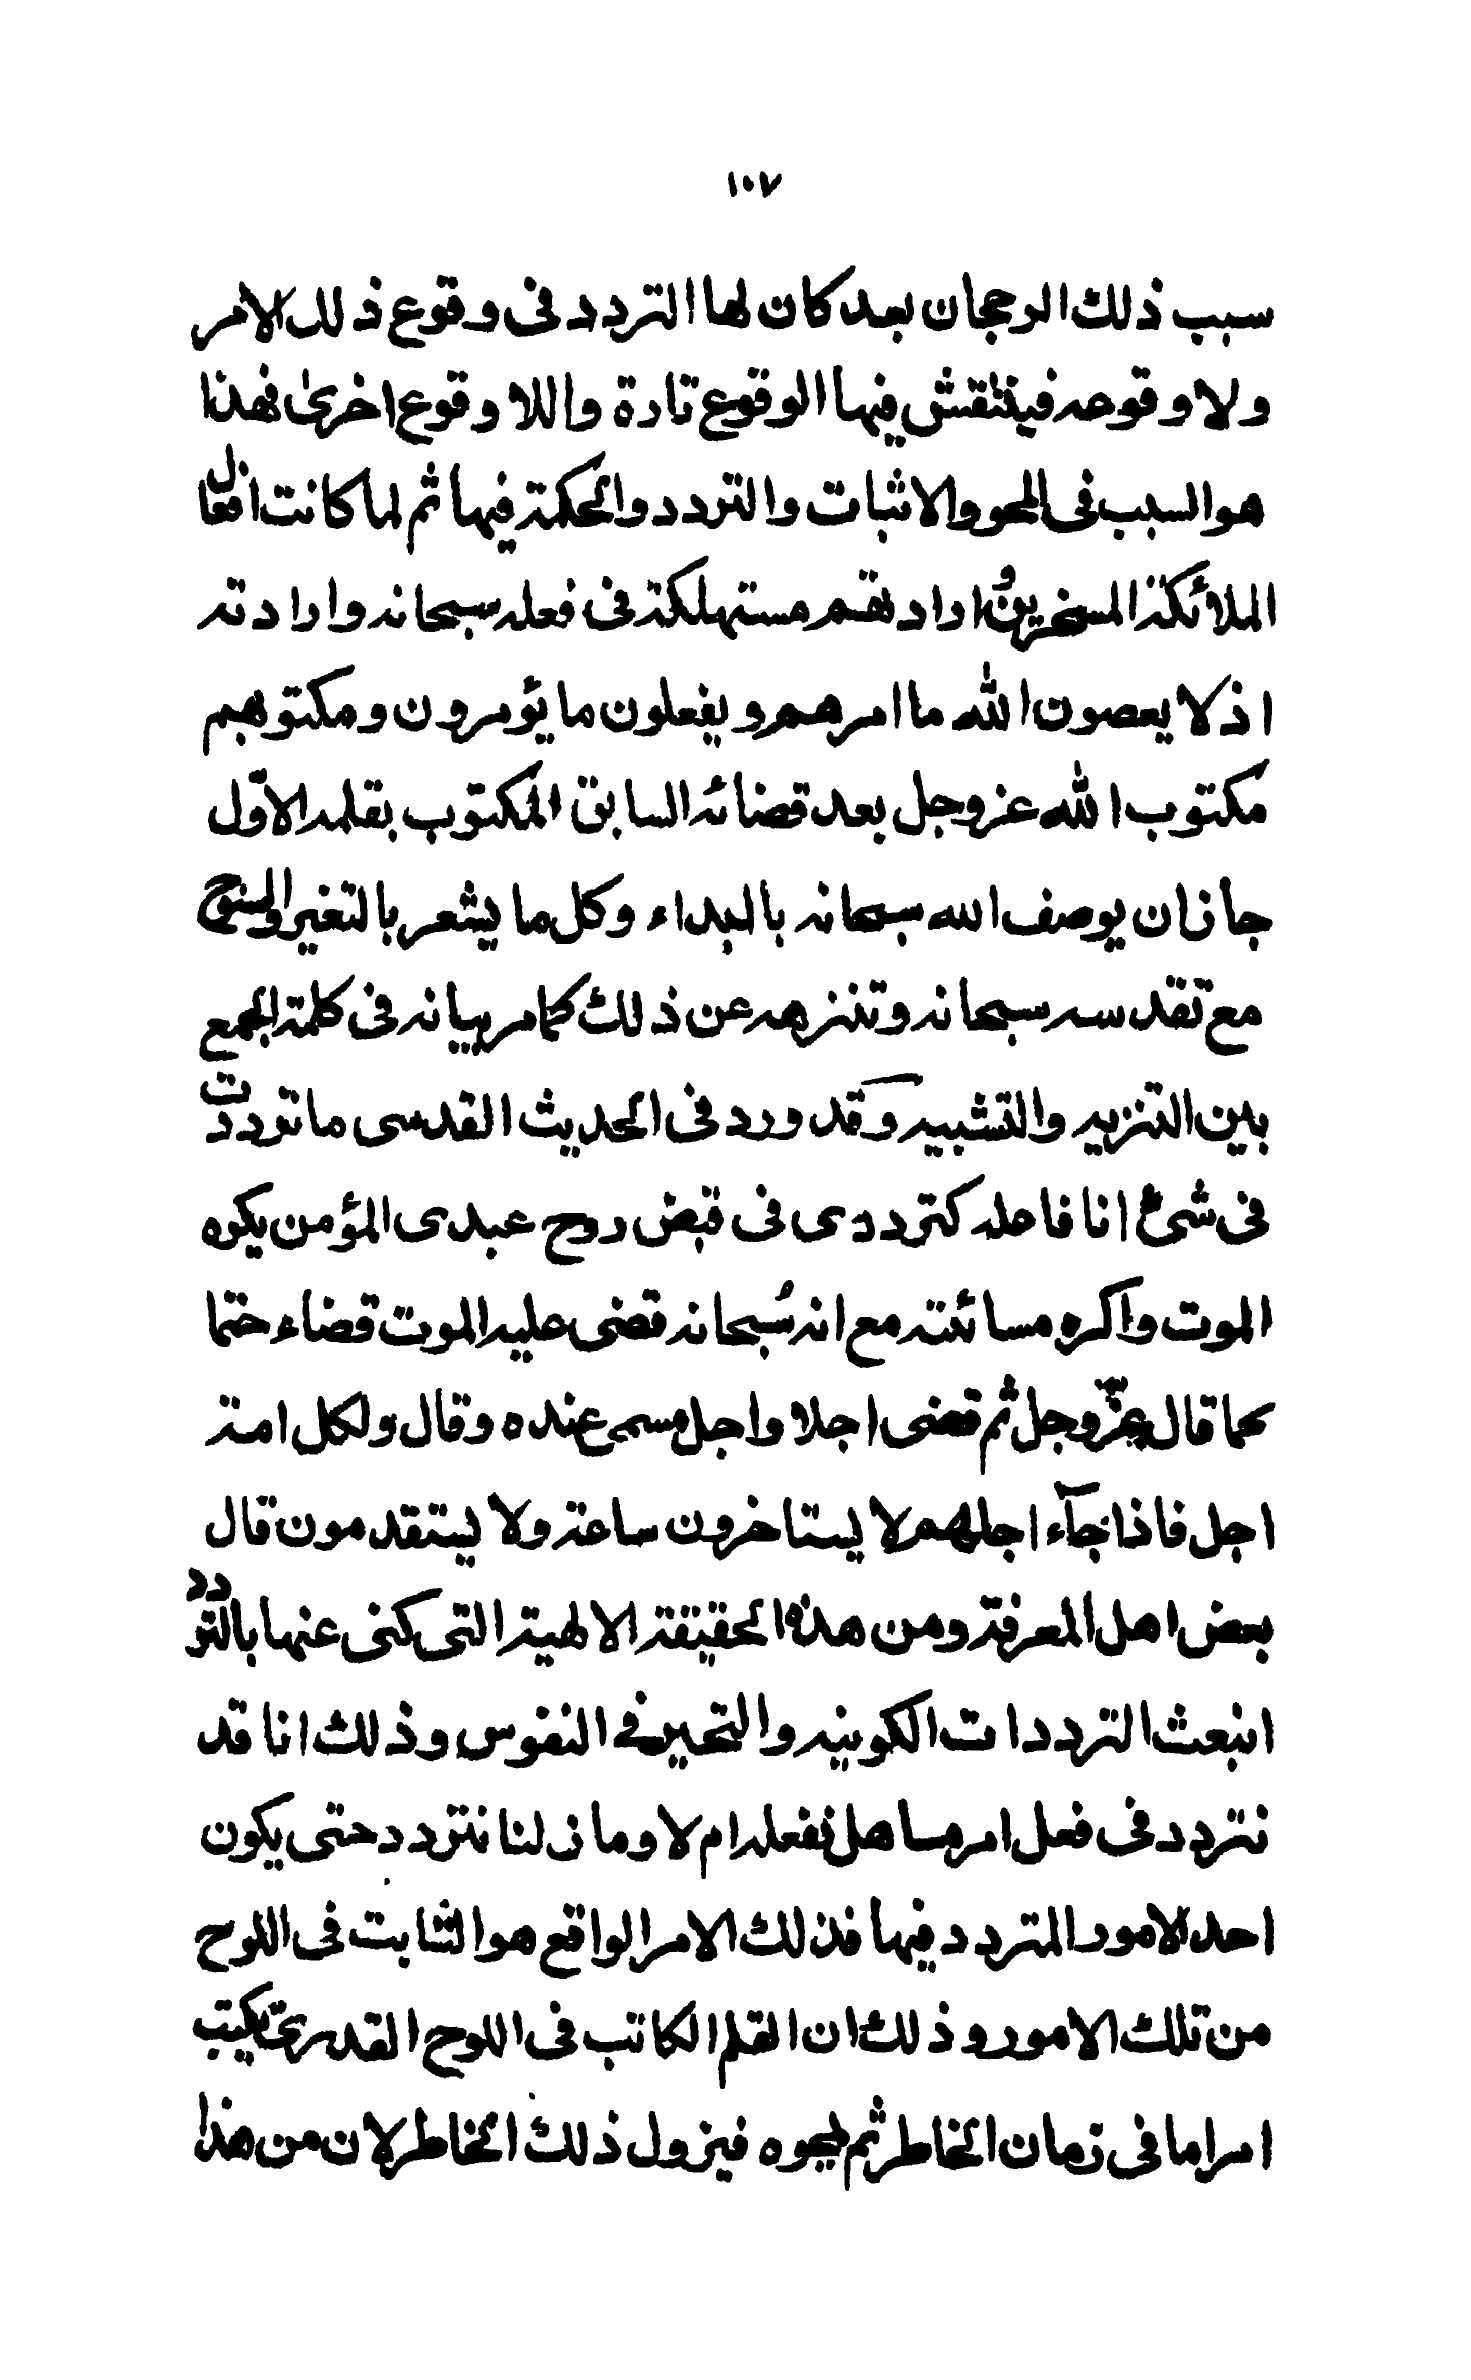 ١٠٧
سبب ذلك الرجحان بعد كان لها التردد فى وقوع ذلك الامر
ولا وقوعه فينتقش فيها الوقوع تارة واللا وقوع اخرى فهذا
هو السبب فى المحو والاثبات والتردد والحكمة فيها ثم لما كانت افعال
الملائكة المسخرين وارادتهم مستهلكة فى فعله سبحانه وارادته
اذ لا يعصون الله ما امرهم ويفعلون ما يؤمرون ومكتوبهم
مكتوب الله عز وجل بعد قضائه السابق المكتوب بقلمه الاوّل
جاز ان يوصف الله سبحانه بالبداء وكل ما يشعر بالتغير والسنوح
مع تقدسه سبحانه وتنزهه عن ذلك كما مر بيانه فى كلمة الجمع
بين التنزيه والتشبيه وقد ورد فى الحديث القدسى ما ترددت
فى شئ انا فاعله كترددى فى قبض روح عبدى المؤمن يكره
الموت واكره مسائته مع انه سُبحانه قضى عليه الموت قضاء حتما
كما قال عزّ وجل ثم قضى اجلا واجل مسمى عنده وقال ولكل امة
اجل فاذا جآء اجلهم لا يستاخرون ساعة ولا يستقدمون قال
بعض اهل المعرفة ومن هذه الحقيقة الالهية التى كنى عنها بالتردد
انبعث الترددات الكونيه والتحير فى النفوس وذلك انا قد
نتردد فى فعل امر ما هل نفعله ام لا وما زلنا نتردد حتى يكون
احد الامور المتردد فيها فذلك الامر الواقع هو الثابت فى اللوح
من تلك الامور وذلك ان القلم الكاتب فى اللوح القدرى يكتب
امرا ما فى زمان الخاطر ثم يمحوه فيزول ذلك الخاطر لان من هذا